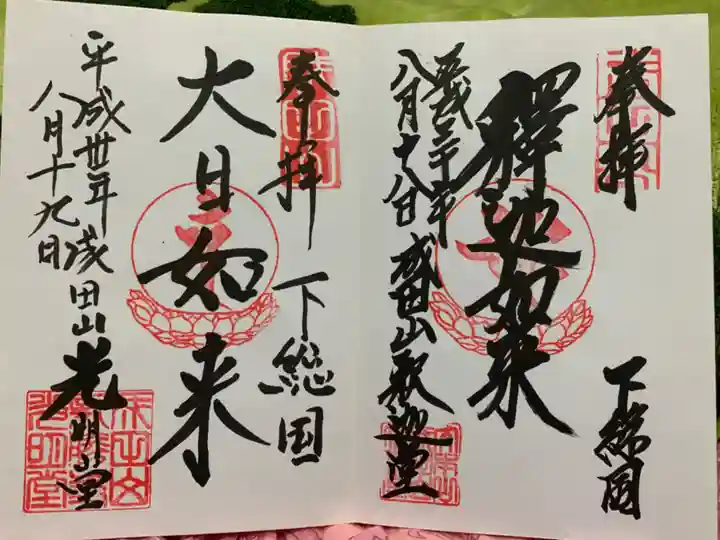 奉拝
下総国
釋迦如来
八月十八日 成田山釈迦堂
奉拝
下総国
大日如来
平成卅年
八月十九日
成田山光明堂